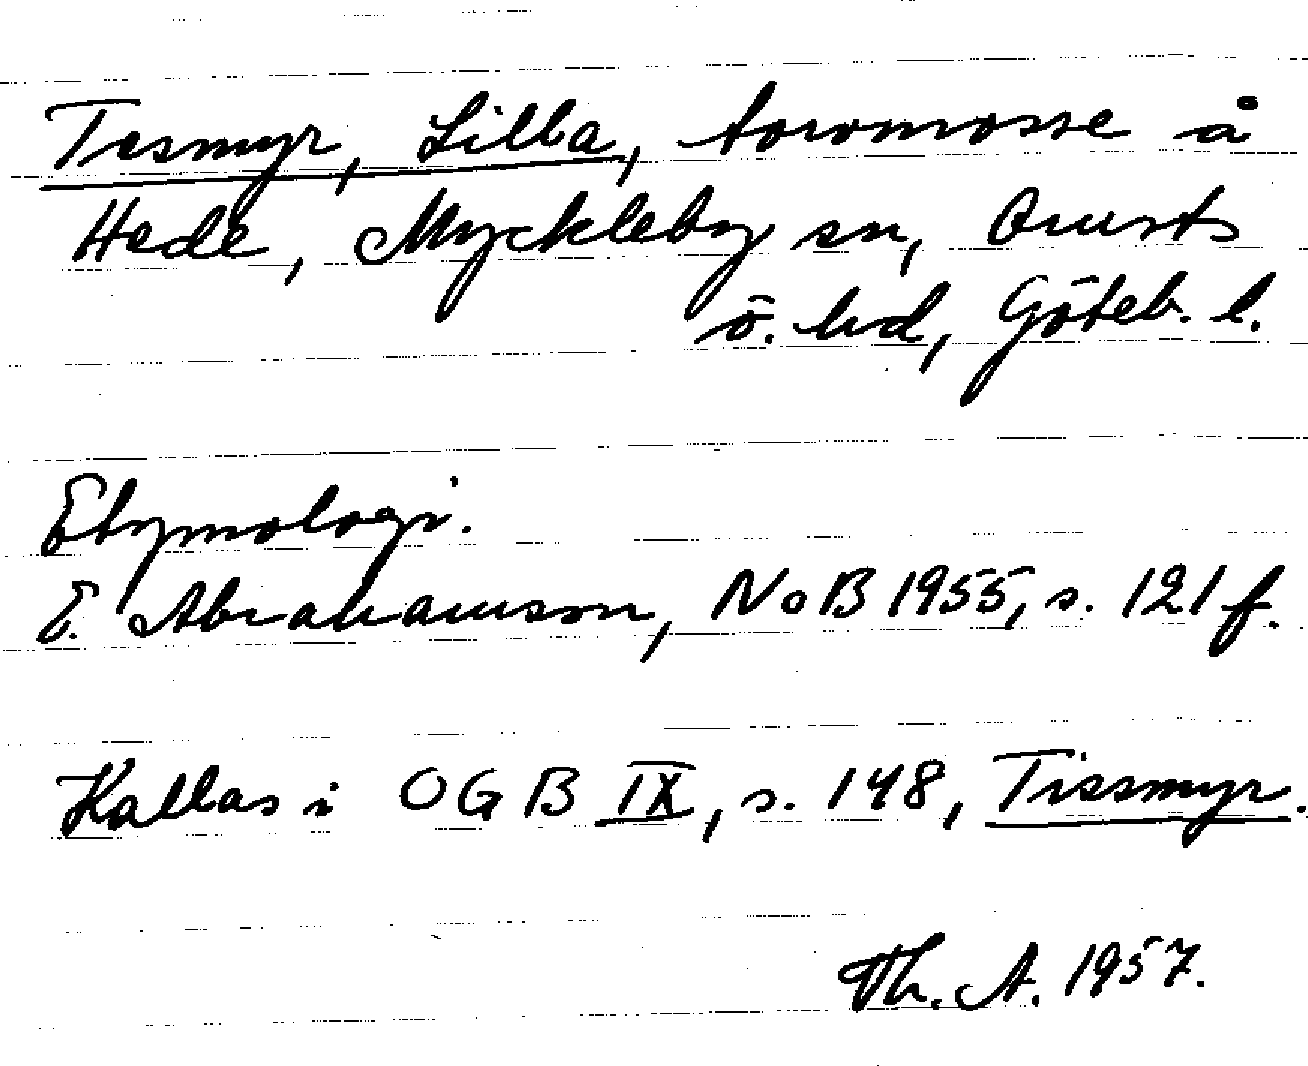 Tesmyr, Lilla, torvmosse å
Hede, Myckleby sn, Orusts
ö. hd, Göteb. l.
Etymologi.
E. Abrahamson, NoB 1955, s. 121 f.
Kallas i OGB IX, s. 148, Tissmyr.
Th. A. 1957.